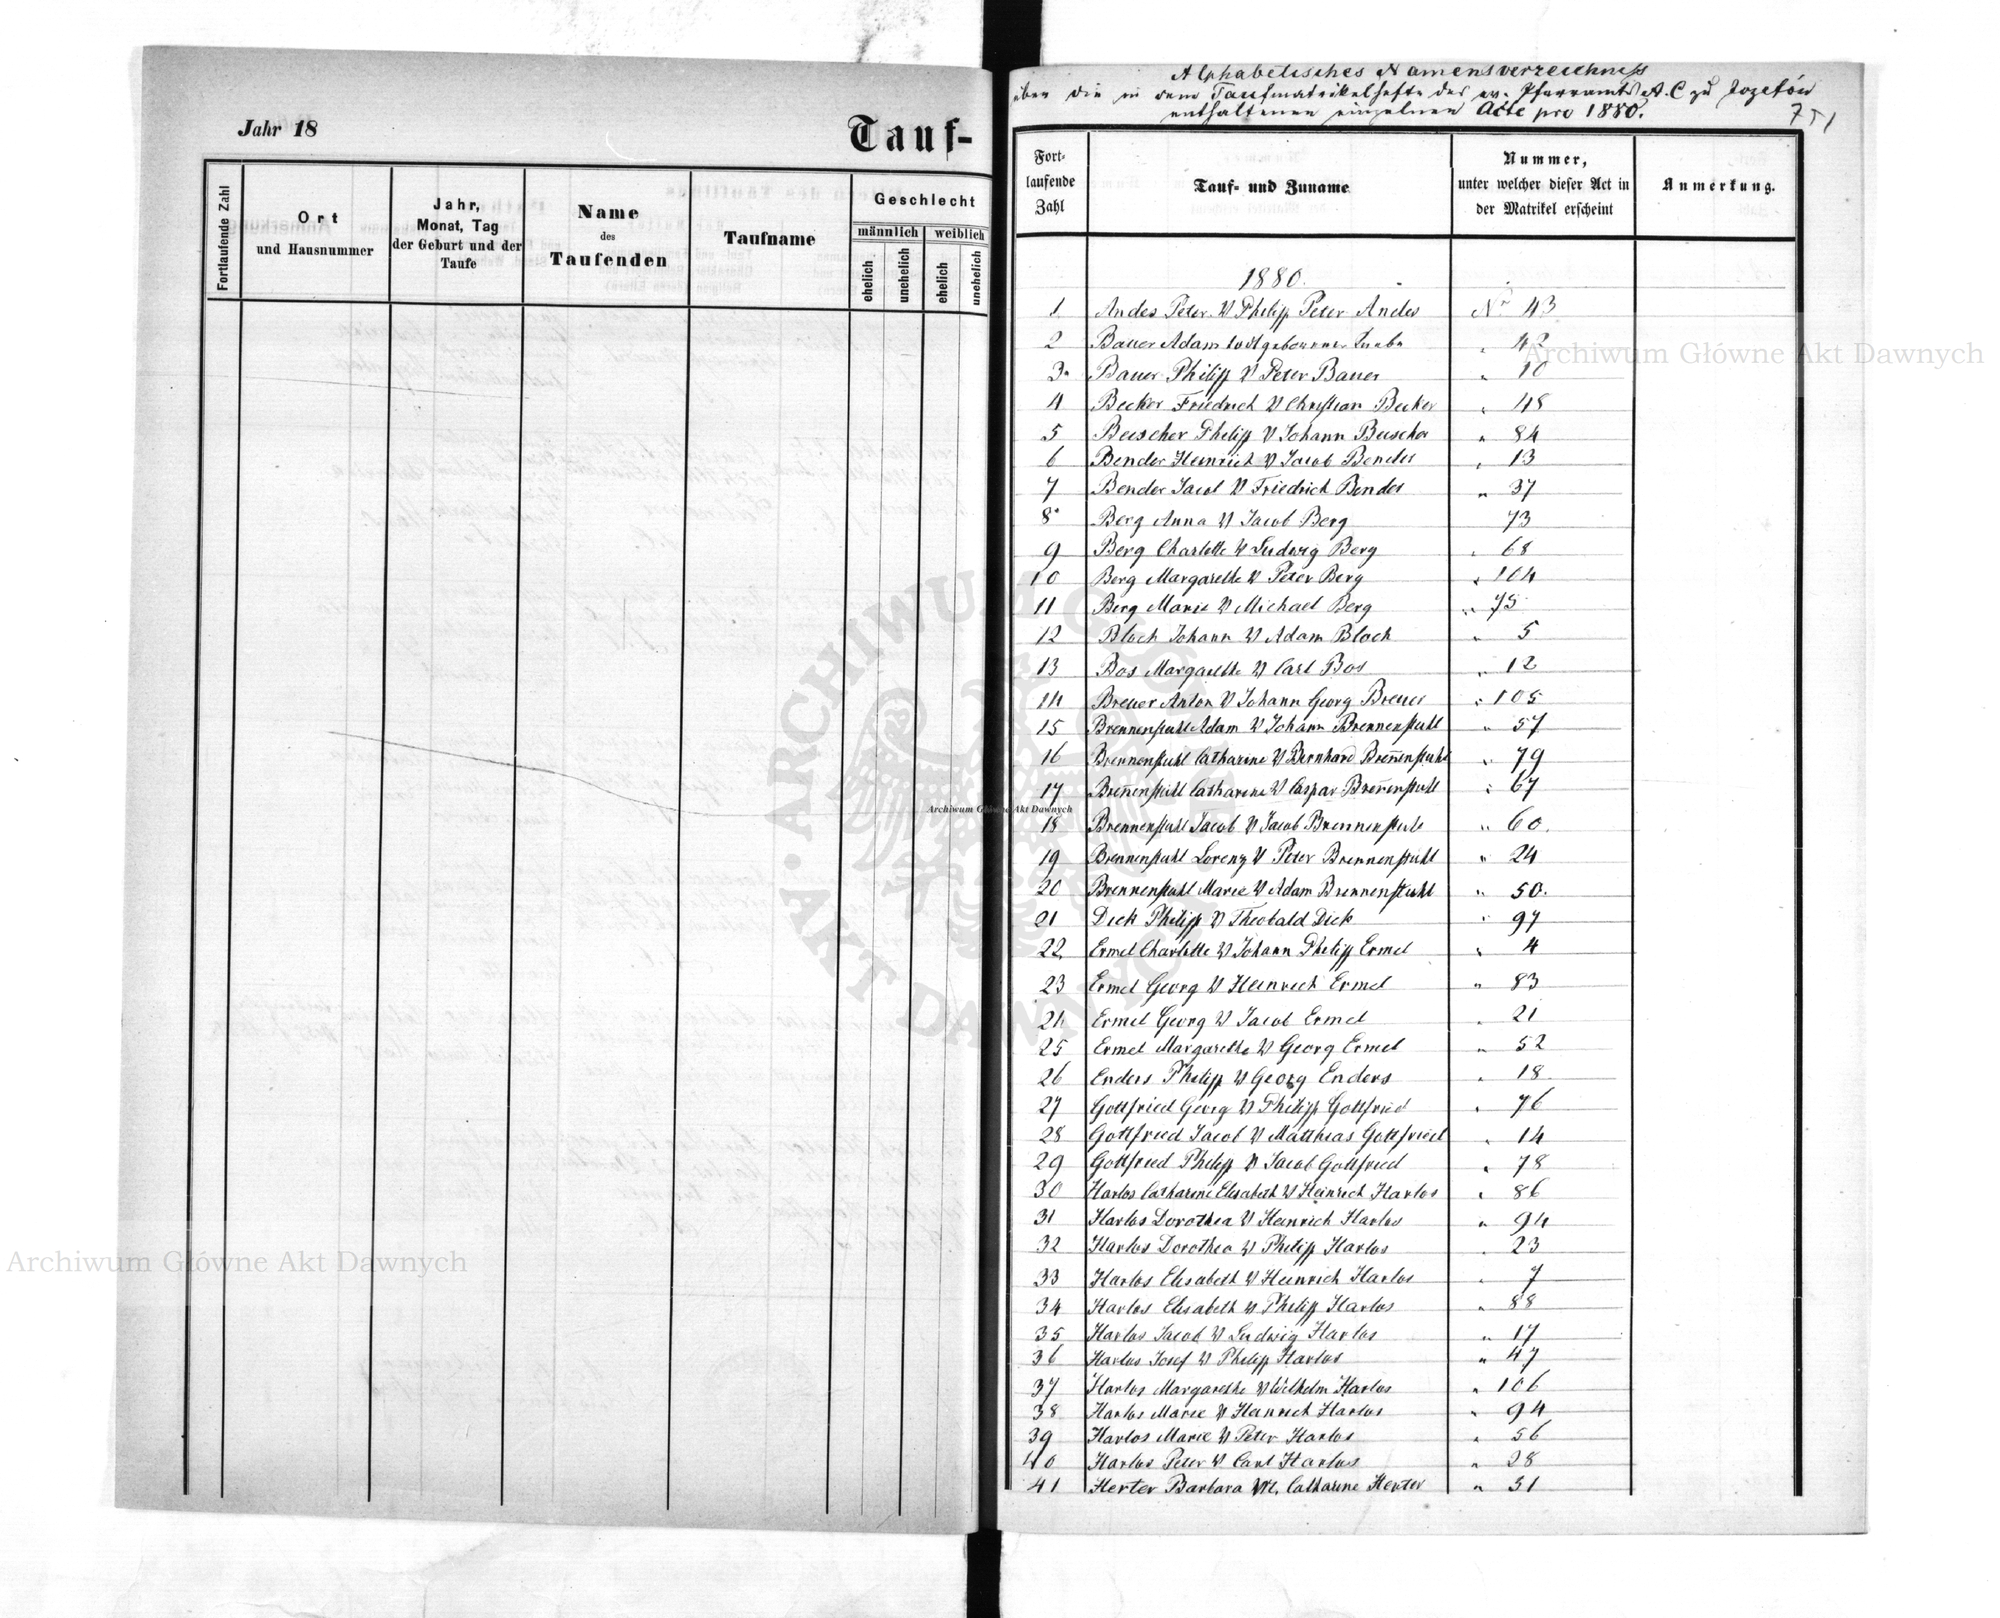 Jahr 18
Tauf-
Fortlaufende Zahl
Ort
und Hausnummer
Jahr,
Monat, Tag
der Geburt und der
Taufe
Name
des
Taufenden
Taufname
Geschlecht
männlich weiblich
ehelich unehelich ehelich unehelich
Alphabetisches Namensverzeichniss
über die in dem Taufmatrikelhefte des ev. Pfarramts A. C zu Jozefów
enthaltenen einzelnen Acte pro 1880.
751
Fort-
laufende
Zahl
Tauf- und Zuname
Nummer,
unter welcher dieser Act in
der Matrikel erscheint
Anmerkung.
1880.
1 Andes Peter V Philipp Peter Andes Nr 43
2 Bauer Adam todtgeborener Knabe " 42
3 Bauer Philipp V Peter Bauer " 10
4 Becker Friedrich V Christian Becker " 48
5 Beischer Philipp V Johann Beischer " 84
6 Bender Heinrich V Jacob Bender " 13
7 Bender Jacob V Friedrich Bender " 37
8 Berg Anna V Jacob Berg 73
9 Berg Charlotte V Ludwig Berg " 68
10 Berg Margarethe V Peter Berg " 104
11 Berg Marie V Michael Berg " 75
12 Bloch Johann V Adam Bloch " 5
13 Bos Margarethe V Carl Bos " 12
14 Breuer Anton V Johann Georg Breuer " 105
15 Brennenstuhl Adam V Johann Brennenstuhl " 57
16 Brennenstuhl Catharine V Bernhard Breñenstuhl " 79
17 Breñenstuhl Catharine V Caspar Breñenstuhl " 67
18 Brennenstuhl Jacob V Jacob Brennenstuhl " 60.
19 Brennenstuhl Lorenz V Peter Brennenstuhl " 24
20 Brennenstuhl Marie V Adam Brennenstuhl " 50.
21 Dick Philipp V Theobald Dick " 97
22 Ermel Charlotte V Johann Philipp Ermel " 4
23 Ermel Georg V Heinrich Ermel " 83
24 Ermel Georg V Jacob Ermel " 21
25 Ermel Margarethe V Georg Ermel " 52
26 Enders Philipp V Georg Enders " 18
27 Gottfried Georg V Philipp Gottfried " 76
28 Gottfried Jacob V Matthias Gottfried " 14
29 Gottfried Philipp V Jacob Gottfried " 78
30 Harlos Catharine Elisabeth V Heinrich Harlos " 86
31 Harlos Dorothea V Heinrich Harlos " 94
32 Harlos Dorothea V Philipp Harlos " 23
33 Harlos Elisabeth V Heinrich Harlos " 7
34 Harlos Elisabeth V Philipp Harlos " 88
35 Harlos Jacob V Ludwig Harlos " 17
36 Harlos Josef V Philipp Harlos " 47
37 Harlos Margarethe V Wilhelm Harlos " 106
38 Harlos Marie V Heinrich Harlos " 94
39 Harlos Marie V Peter Harlos " 56
40 Harlos Peter V Carl Harlos " 28
41 Herter Barbara M. Catharine Herter " 31
Archiwum Główne Akt Dawnych
Archiwum Główne Akt Dawnych
Archiwum Główne Akt Dawnych